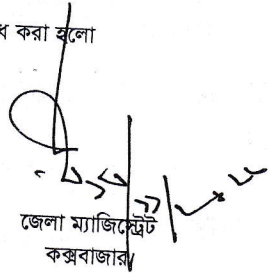 করা হলো
জেলা ম্যাজিস্ট্রেট
কক্সবাজার